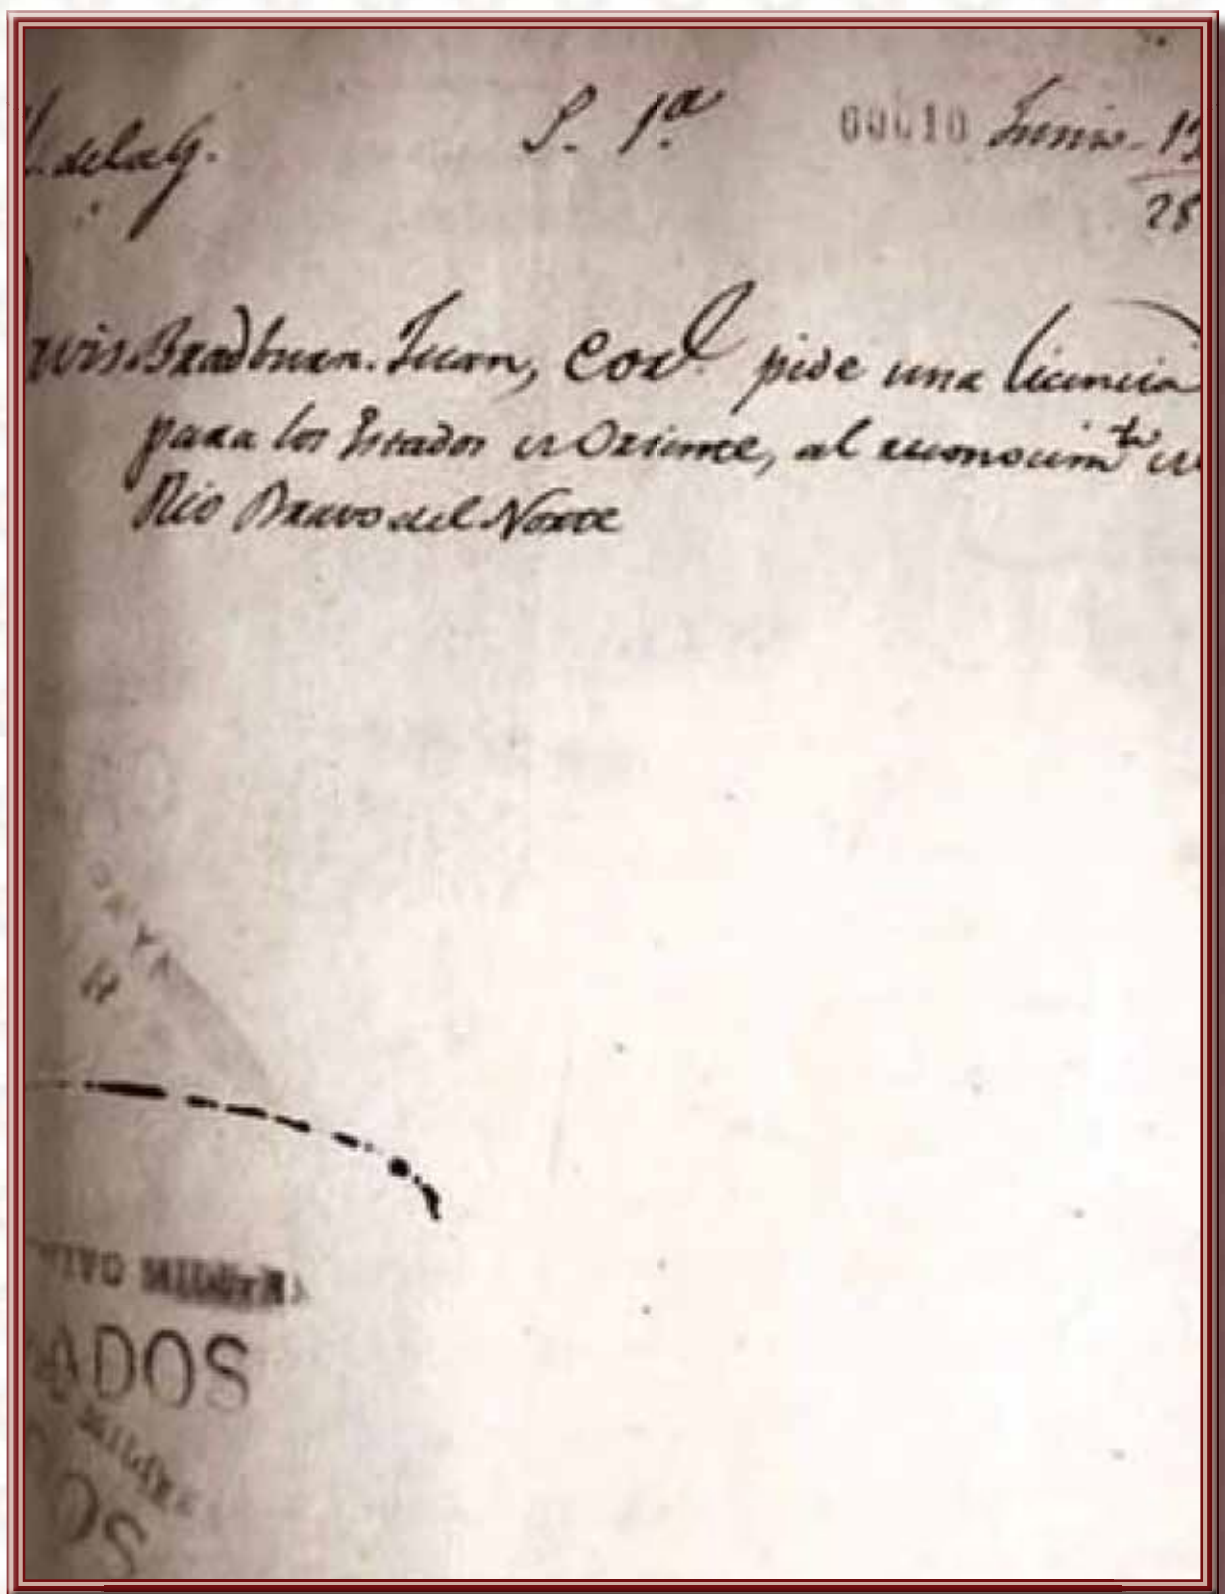 de la G.
S. 1.ª
00010 Junio - 12
28
avis Bradburn. Juan, Corl. pide una licencia
para los Estados de Oriente, al reconocimto. de
Rio Bravo del Norte
MILITAR
ADOS
MILITA
OS